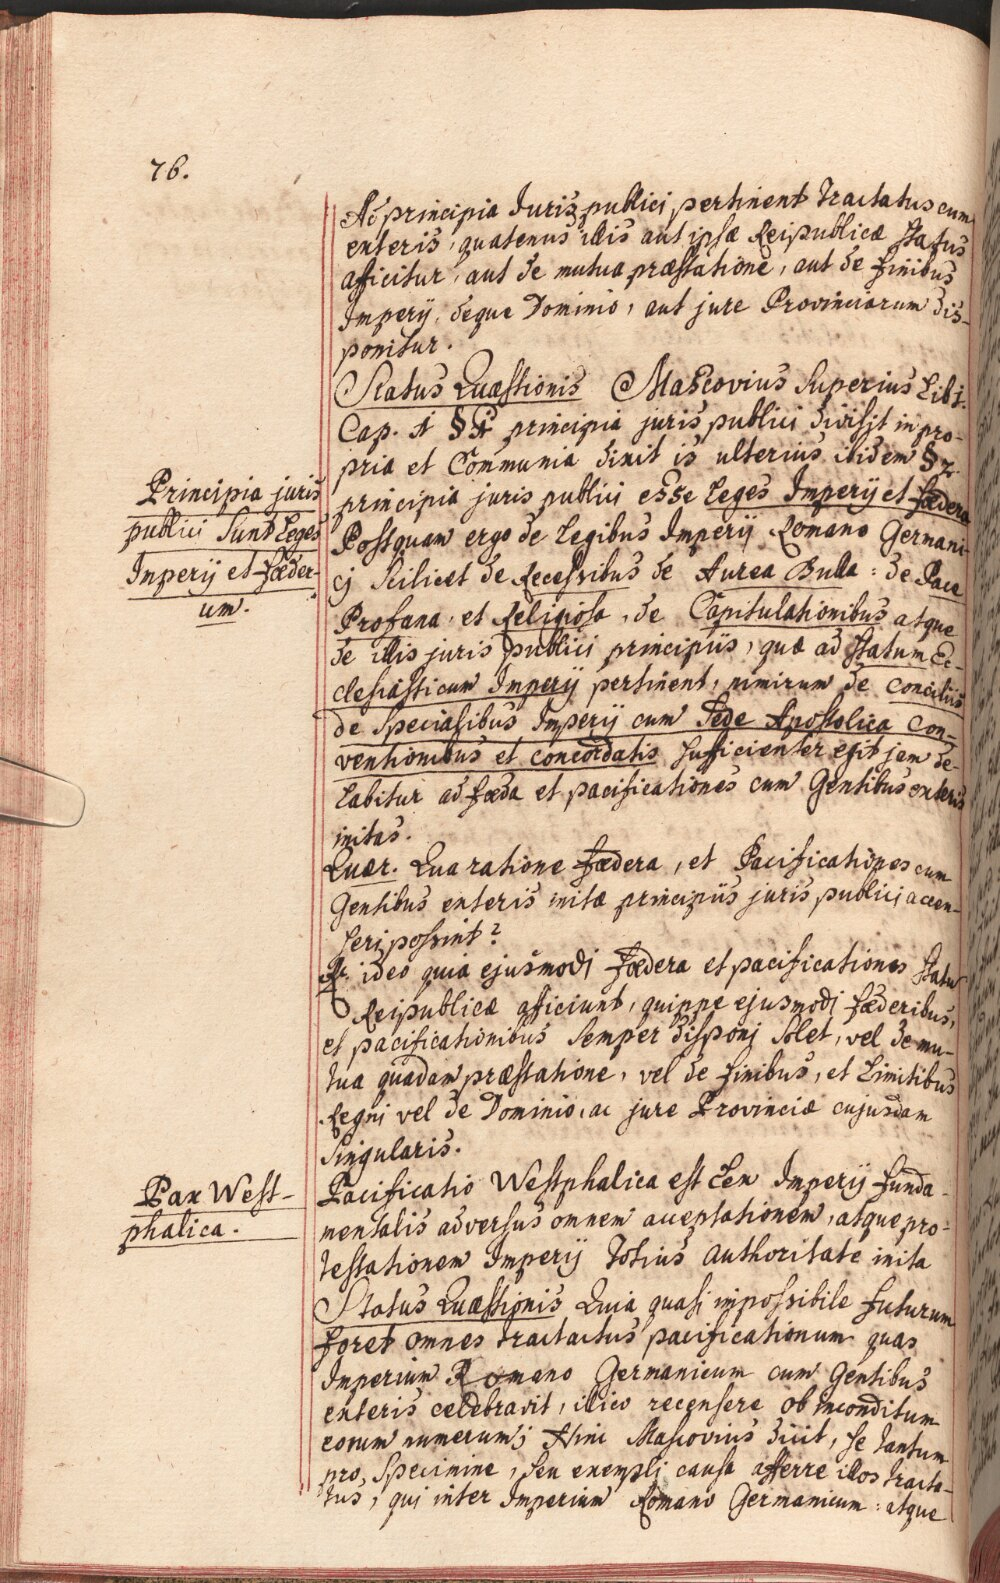 76.
Ad principia Juris publici pertinent tractatus cum
exteris, quatenus illis aut ipsæ Reipublicæ status
afficitur, aut de mutua præstatione, aut de finibus
Imperij, deque Dominio, aut jure Provinciarum dis-
ponitur.
Status Quæstionis Mascovius Superius Lib: 1.
Cap. 1 § 1 principia juris publici divisit in pro-
pria et Communia dixit is ulterius ibidem § 2
Principia juris
publici Sunt Leges
Imperij et fœder-
um.
principia juris publici esse Leges Imperij et fœdera
Postquam ergo de Legibus Imperij Romano Germani-
cj scilicet de Recessibus de Aurea Bulla: de Pace
Profana et Religiosa, de Capitulationibus atque
de illis juris publici principiis, quæ ad statum Ec-
clesiasticum Imperij pertinent, nimirum de conciliis
de Specialibus Imperij cum Sede Apostolica con-
ventionibus et concordatis sufficienter egit jam de-
labitur ad fœda et pacificationes cum Gentibus exteris
initas.
Quær. Qua ratione fœdera, et Pacificationes cum
Gentibus exteris initæ principiis juris publici accen-
seri possint?
R. ideo quia ejusmodi fœdera et pacificationes statu
Reipublicæ afficiunt, quippe ejusmodi fœderibus,
et pacificationibus semper disponi solet, vel de mu-
tua quadam præstatione, vel de finibus, et Limitibus
Regni vel de Dominio, ac jure Provinciæ cujusdam
singularis.
Pax West-
phalica.
Pacificatio Westphalica est Lex Imperij funda-
mentalis adversus omnem acceptationem, atque pro-
testationem Imperij totius authoritate inita
Status Quæstionis Quia quasi impossibile futurum
foret omnes tractactus pacificationum quas
Imperium Romano Germanicum cum Gentibus
exteris celebravit, illico recensere ob inconditum
eorum numerum; Hinc Mascovius dicit, se tantum
pro Specimine, seu exempli causa afferre illos tracta-
tus, qui inter Imperium Romano Germanicum: atque